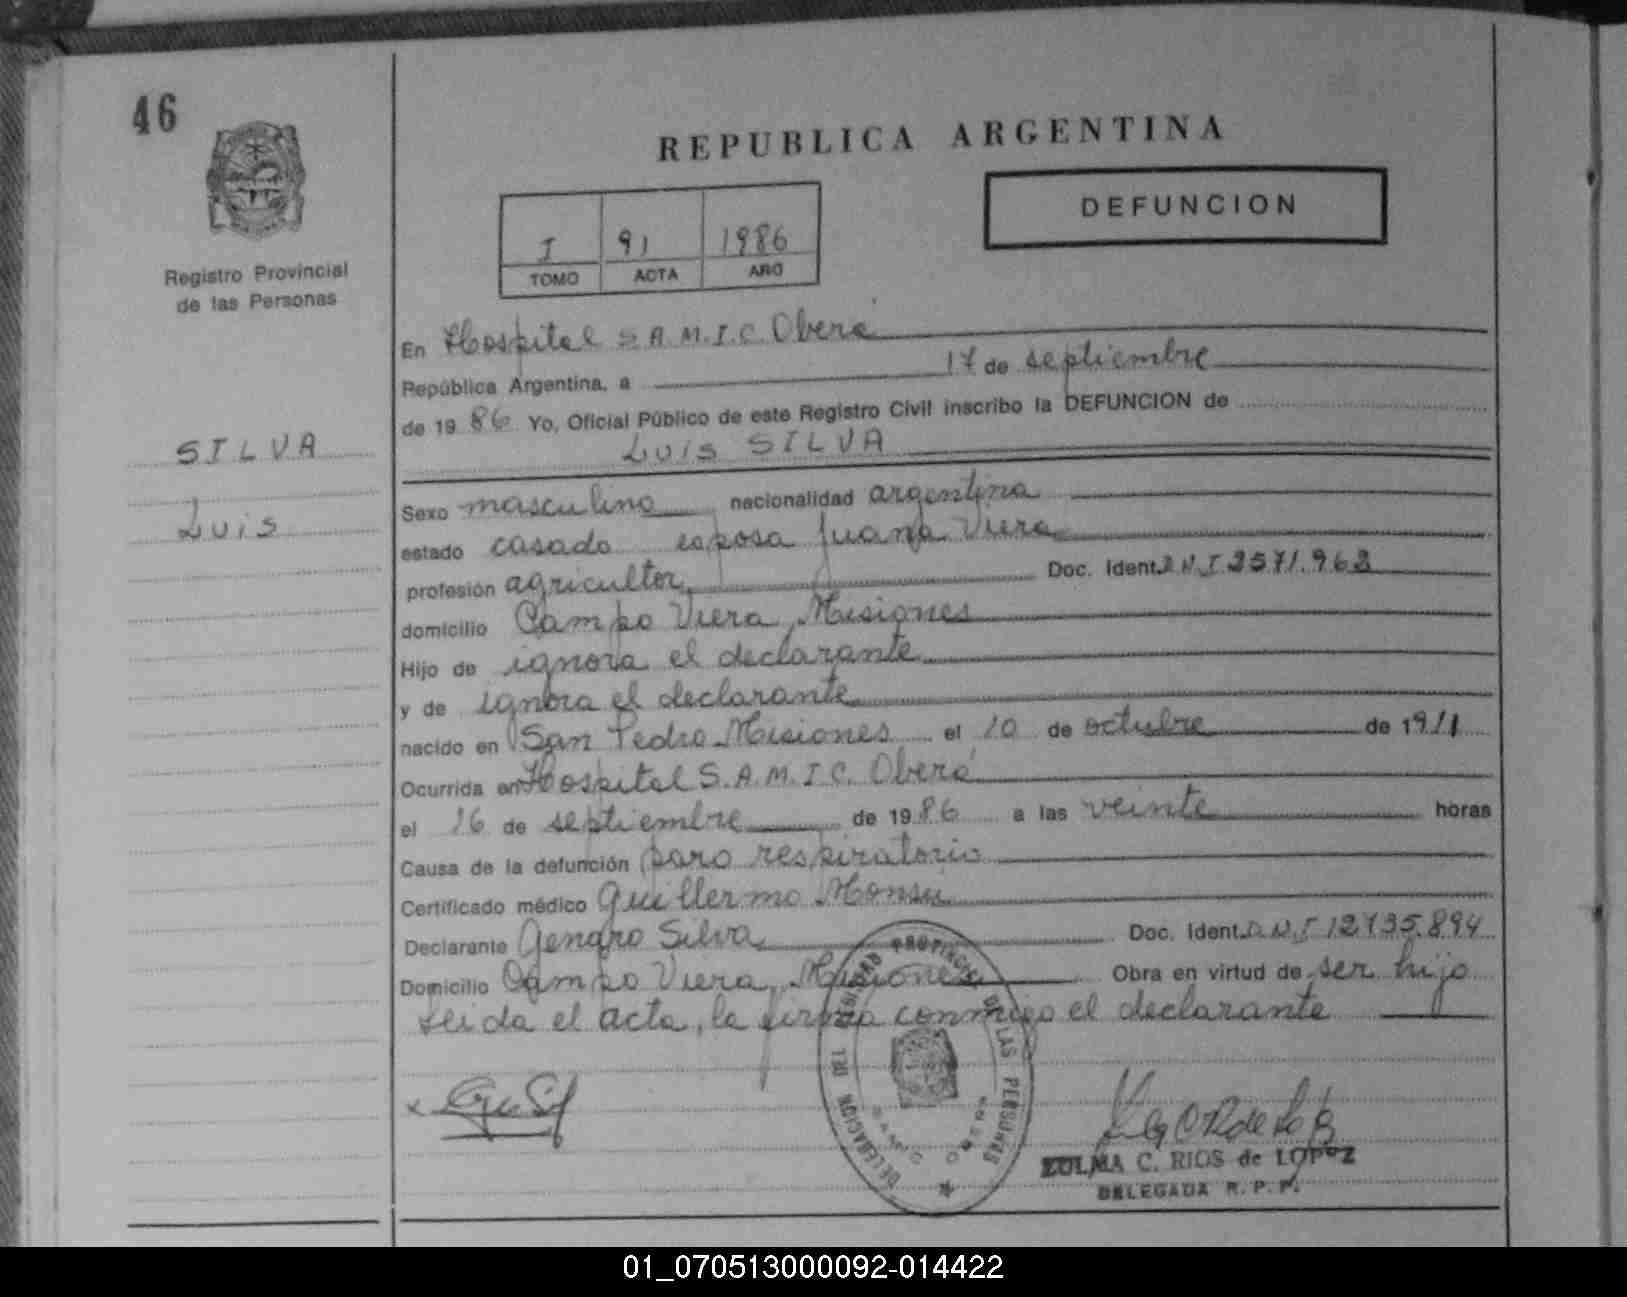 46
REPUBLICA ARGENTINA
DEFUNCION
I 91 1986
TOMO ACTA AÑO
Registro Provincial
de las Personas
SILVA
Luis
En Hospital S.A.M.I.C. Oberá
República Argentina, a 17 de septiembre
de 1986 Yo, Oficial Público de este Registro Civil inscribo la DEFUNCION de
Luis SILVA
Sexo masculino nacionalidad argentina
estado casado esposa Juana Viera
profesión agricultor Doc. Ident. D.N.I 3571.963
domicilio Campo Viera, Misiones
Hijo de ignora el declarante
y de ignora el declarante
nacido en San Pedro Misiones el 10 de octubre de 1911
Ocurrida en Hospital S.A.M.I.C. Oberá
el 16 de septiembre de 1986 a las veinte horas
Causa de la defunción paro respiratorio
Certificado médico Guillermo Monsu
Declarante Genaro Silva Doc. Ident. D.N.I 12.135.894
Domicilio Campo Viera, Misiones Obra en virtud de ser hijo
Leida el acta, la firma conmigo el declarante
DELEGACION PROVINCIAL DE LAS PERSONAS
ZULMA C. RIOS de LOPEZ
DELEGADA R. P. P.
01_070513000092-014422